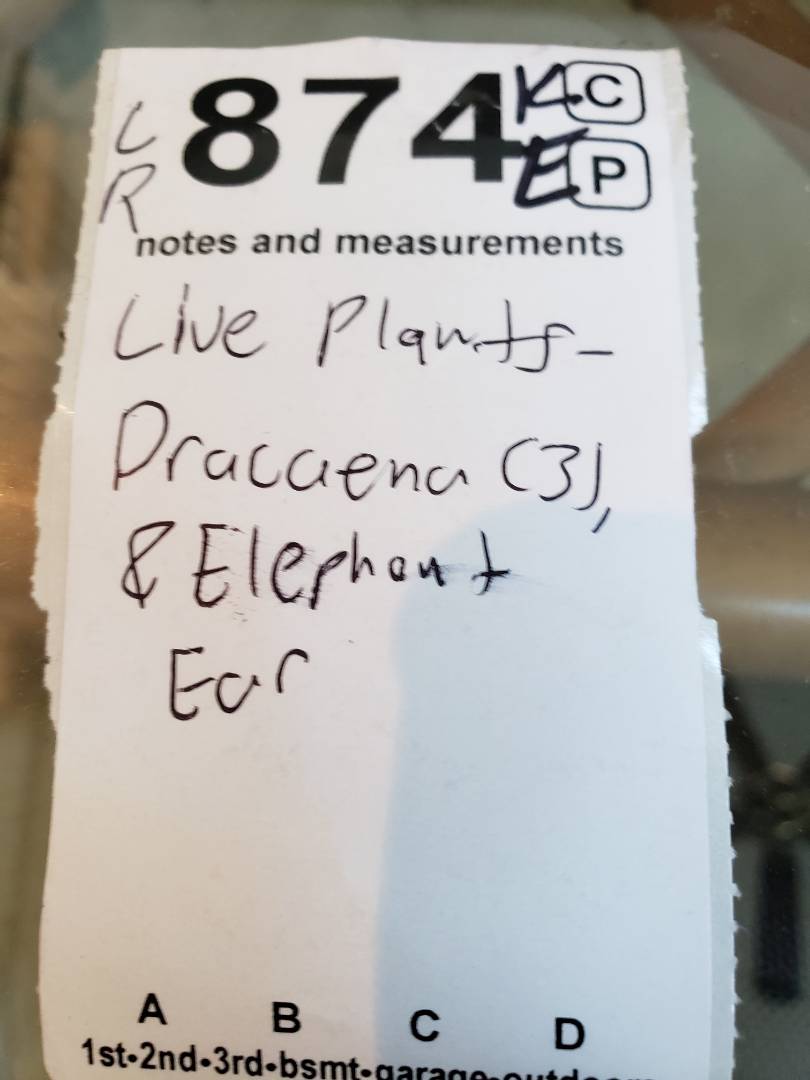 L 874 K C
R E P
notes and measurements
Live Plants-
Dracaena (3),
& Elephant
Ear
A B C D
1st•2nd•3rd•bsmt•garage•outdoor